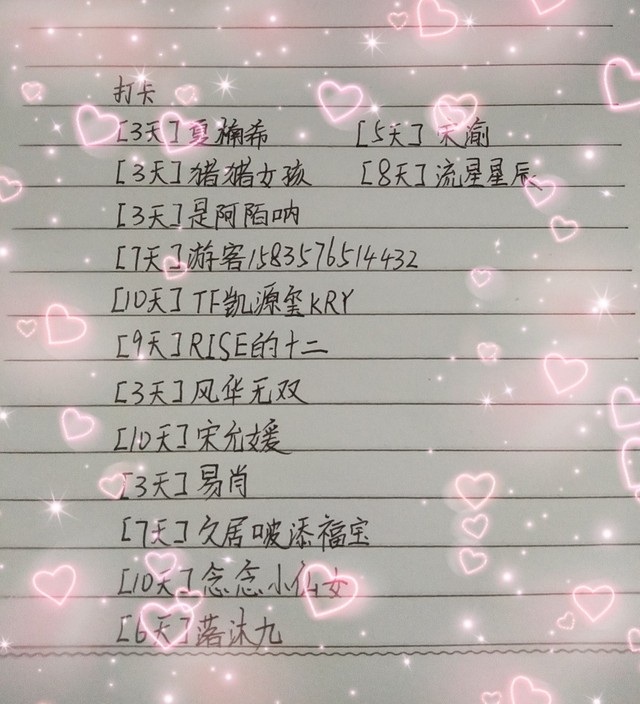 打卡
[3天]夏楠希 [5天]宋渝
[3天]猪猪女孩 [8天]流星星辰
[3天]是阿陌呐
[7天]游客1583576514432
[10天]TF凯源玺KRY
[9天]RISE的十二
[3天]风华无双
[10天]宋允媛
[3天]易肖
[7天]久居啵添福宝
[10天]念念小仙女
[6天]落沐九